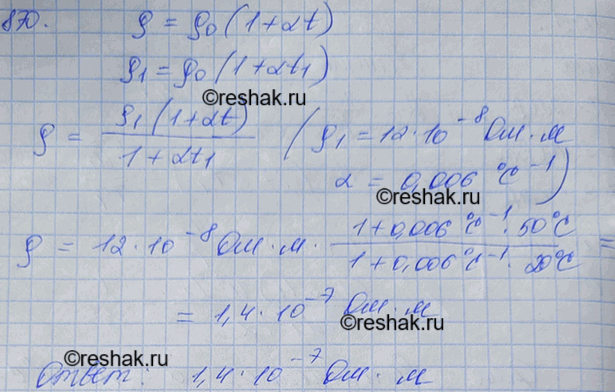 870. ρ = ρ₀ (1+αt)
ρ₁ = ρ₀ (1+αt₁)
©reshak.ru
ρ = ρ₁ (1+αt) / 1+αt₁ (ρ₁ = 12·10⁻⁸ Ом·м
α = 0,006 °C⁻¹)
©reshak.ru
ρ = 12·10⁻⁸ Ом·м · 1+0,006 °C⁻¹·50°C / 1+0,006 °C⁻¹·20°C =
= 1,4·10⁻⁷ Ом·м
©reshak.ru
©reshak.ru
Ответ: 1,4·10⁻⁷ Ом·м